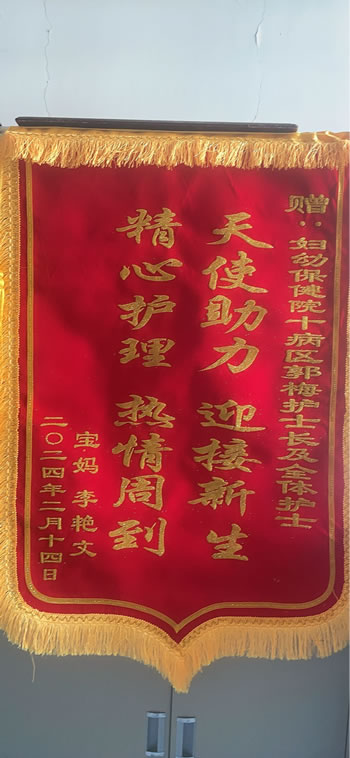 赠：妇幼保健院十病区郭梅护士长及全体护士
天使助力 迎接新生
精心护理 热情周到
宝妈 李艳文
二〇二四年二月十四日